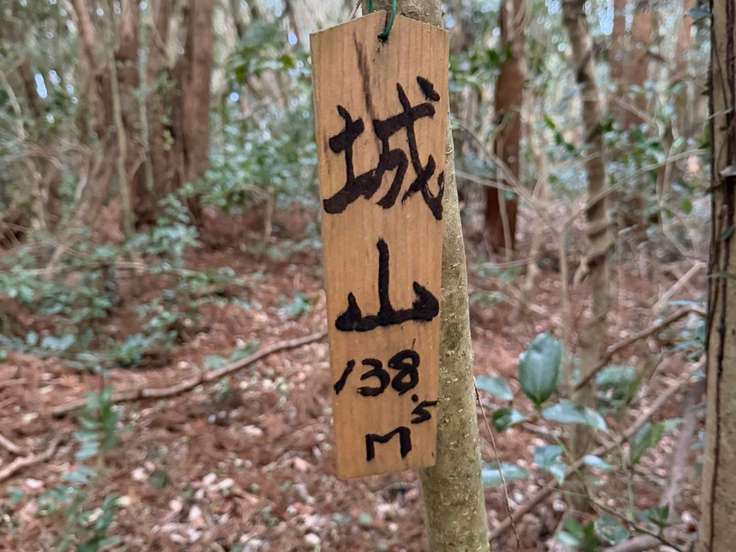 城山
138.5
M